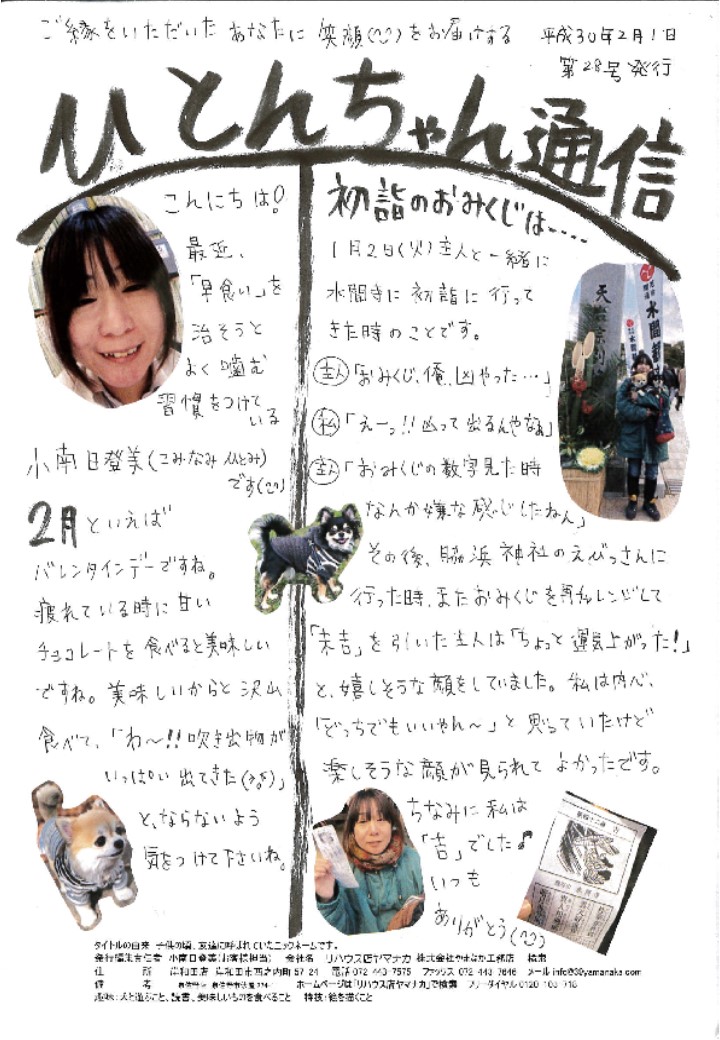 ご縁をいただいたあなたに笑顔(^^)をお届けする
平成30年2月1日
第28号発行
ひとんちゃん通信
こんにちは!
最近、
「早食い」を
治そうと
よく噛む
習慣をつけて
いる
小南日登美(こみなみひとみ)
です(^^)
2月といえば
バレンタインデーですね。
疲れている時に甘い
チョコレートを食べると美味しい
ですね。美味しいからと沢山
食べて、「わ〜!!吹き出物が
いっぱい出てきた」
と、ならないよう
気をつけて下さいね。
初詣のおみくじは....
1月2日(火)主人と一緒に
水間寺に初詣に行って
きた時のことです。
主人「おみくじ、俺、凶やった…」
私「えーっ!!凶って出るんやなぁ」
主人「おみくじの数字見た時
なんか嫌な感じしたねん」
その後、脇浜神社のえびっさんに
行った時、またおみくじを再チャレンジして
「末吉」を引いた主人は「ちょっと運気上がった!」
と、嬉しそうな顔をしていました。私は内心、
「どっちでもいいやん〜」と思っていたけど
楽しそうな顔が見られてよかったです。
ちなみに私は
「吉」でした♪
いつも
ありがとう(^^)
水間
タイトルの由来 子供の頃、友達に呼ばれていたニックネームです。
発行編集責任者 小南日登美(お客様担当) 会社名 リハウス店ヤマナカ 株式会社やまなか工務店
住 所 岸和田店 岸和田市西之内町57-24 電話 072-443-7575 ファックス 072-443-7646 メール info@39yamanaka.com
備 考 ホームページは「リハウス店ヤマナカ」で検索 フリーダイヤル0120-
趣味:犬と遊ぶこと、読書、美味しいものを食べること 特技:絵を描くこと